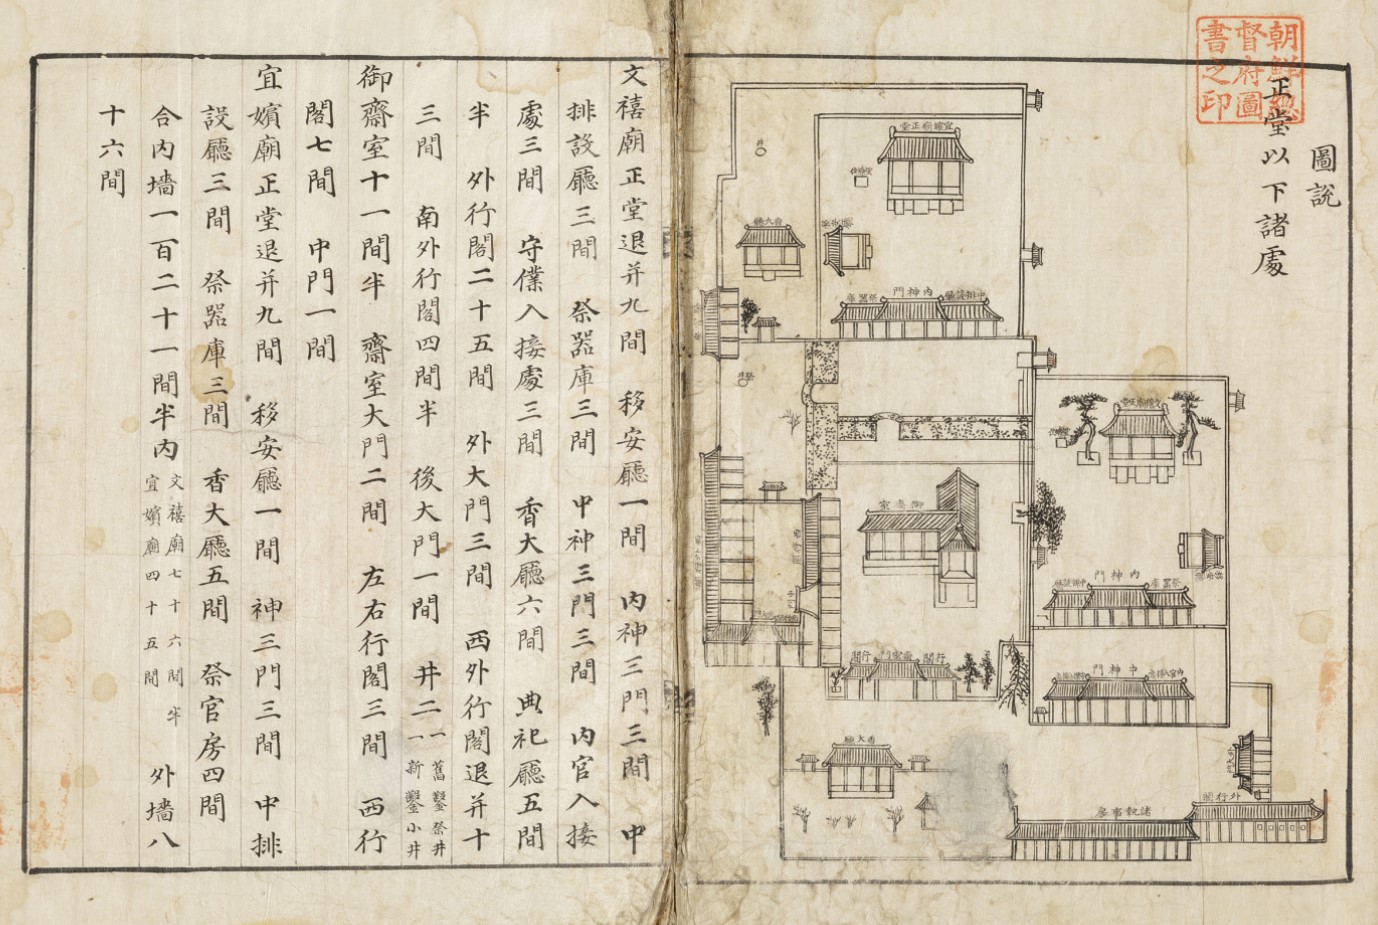 朝鮮總
督府圖
書之印
圖說
正堂以下諸處
宜嬪廟正堂
井
香大廳
移安廳
祭器庫
內神門
中排設廳
祭井
御齋室
行閣
齋室門
行閣
文禧廟正堂
移安廳
中排設廳
內神門
祭器庫
中神門
香大廳
外行閣
諸執事房
文禧廟正堂退并九間 移安廳一間 內神三門三間 中
排設廳三間 祭器庫三間 中神三門三間 內官入接
處三間 守僕入接處三間 香大廳六間 典祀廳五間
半 外行閣二十五間 外大門三間 西外行閣退并十
三間 南外行閣四間半 後大門一間 井二 一舊鑿祭井 一新鑿小井
御齋室十一間半 齋室大門二間 左右行閣三間 西行
閣七間 中門一間
宜嬪廟正堂退并九間 移安廳一間 神三門三間 中排
設廳三間 祭器庫三間 香大廳五間 祭官房四間
合內墻一百二十一間半內 文禧廟七十六間半 宜嬪廟四十五間 外墻八
十六間